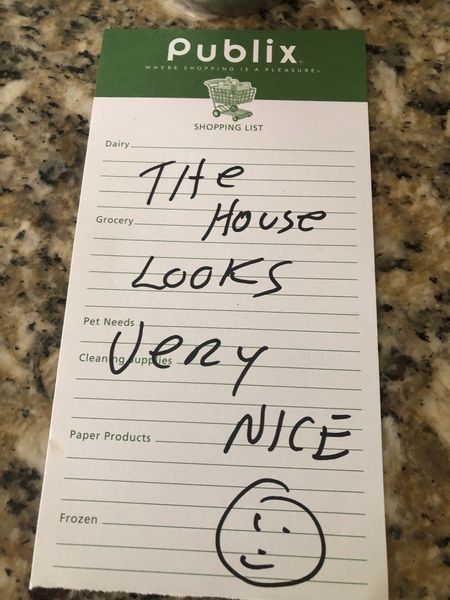 Publix
WHERE SHOPPING IS A PLEASURE®
SHOPPING LIST
Dairy
THe
House
Grocery
LOOKS
Pet Needs
Very
Cleaning Supplies
NICE
Paper Products
Frozen